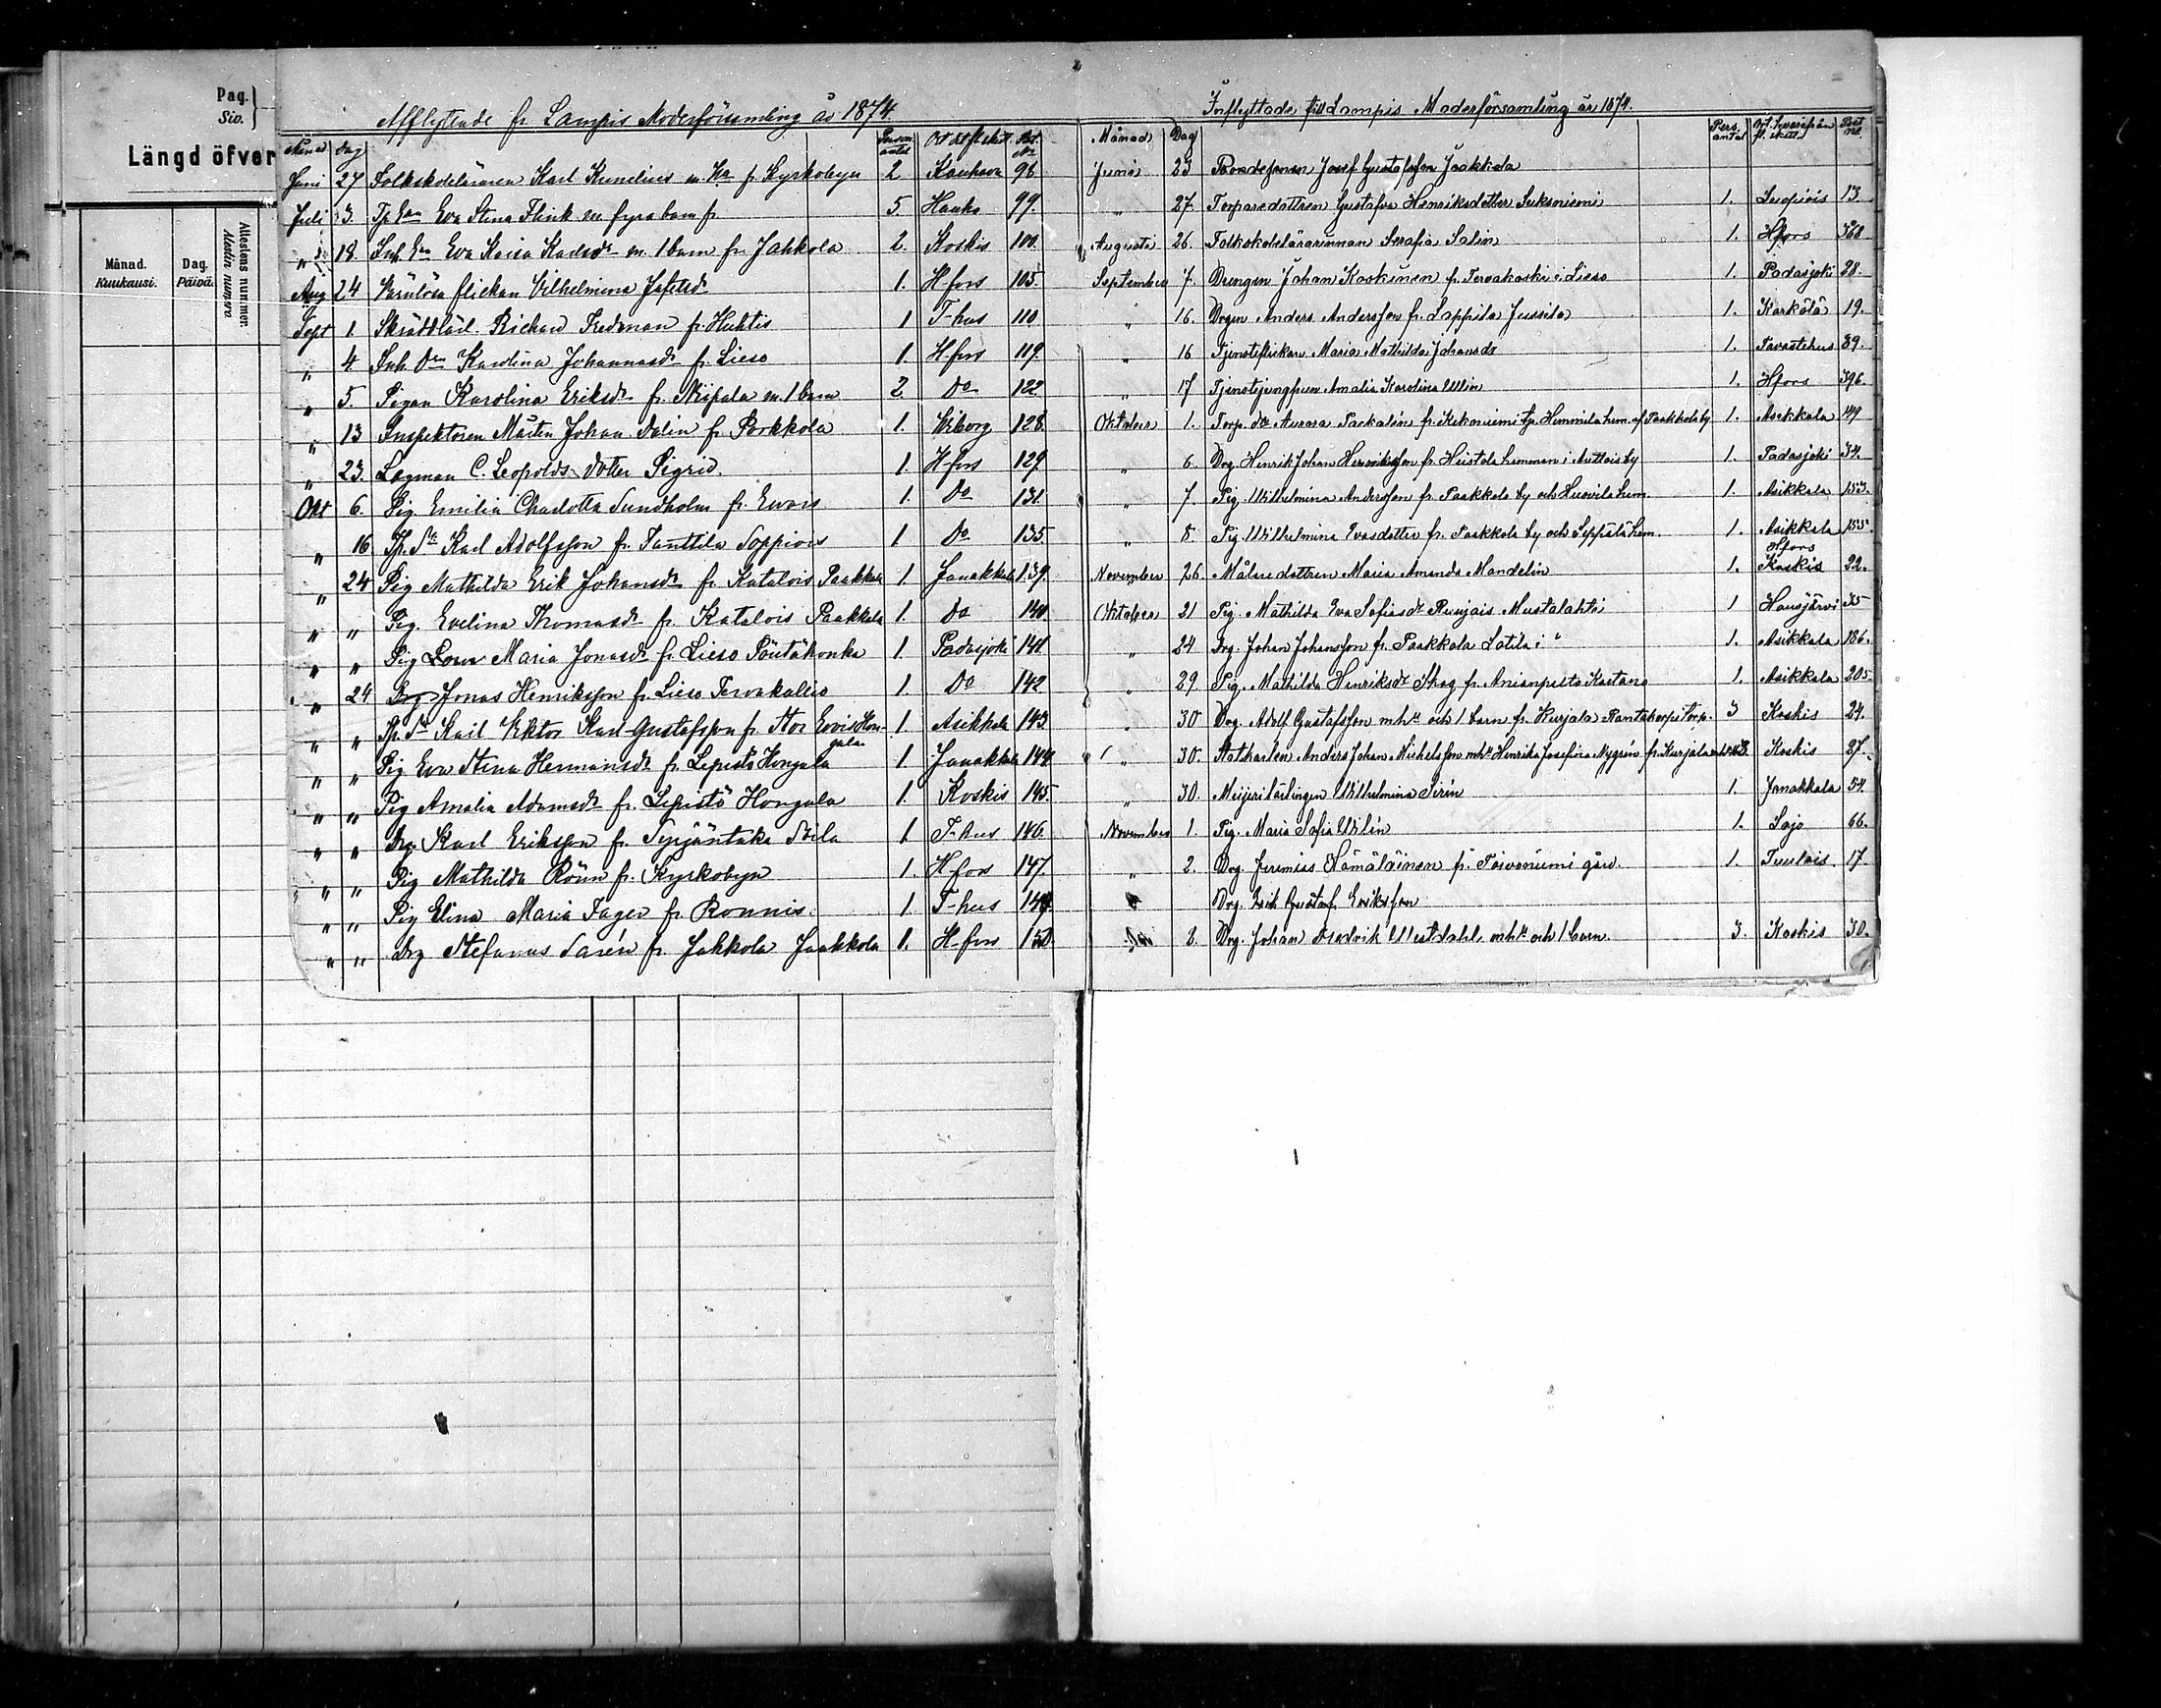 Pag.
Siv.
Längd öfver
Månad.
Kuukausi.
Dag.
Päivä.
Attestens nummer.
Attestin numero
Afflyttade fr. Lampis Moderförsamling år 1874.
Månad Dag Person antal Ort dit fl. skett. Bet. No
Juni 27 Folkskoleläraren Karl Kunelius m. Ha fr Kyrkobyn 2 Kauhava 96
Juli 3. Tp Ean Eva Stina Flink m fyra barn fr 5. Hauho 99.
" 18. Inh. Ean Eva Kaisa Karlsdr m. 1 barn fr. Jahkola 2. Koskis 100.
Aug 24 Värnlösa flickan Vilhelmina Jafetsdr 1. H-fors 105.
Sept 1. Skräddlärl. Richard Fredman fr. Huhtis 1 T-hus 110
" 4 Inh. Drn Karolina Johannasdr fr Lieso 1. H-fors 119.
" 5. Pigan Karolina Eriksdr fr. m. 1 barn 2 Do 122.
" 13 Inspektoren Mårten Johan Dalin fr. Porkkola 1. Wiborg 128.
" 23. Lagman C. Leopolds dotter Sigrid. 1 H-fors 129.
Okt 6. Pig Emilia Charlotta Sundholm fr. Evois 1. Do 131.
" 16 Tp. Sn Karl Adolfsson fr. Tanttila Soppiois 1 Do 135.
" 24 Pig Mathilda Erik Johansdr fr Katalois Paakkola 1 Janakkala 139.
" " Pig. Evelina Thomasdr fr. Katalois Paakkala 1. Do 140.
" " Pig Lovisa Maria Jonasdr fr. Lieso Pöntähonka 1. Padasjoki 141.
" 24 Drg Jonas Henriksson fr. Lieso Tervakallio 1. Do 142
" " Tp. Sn Karl Viktor Karl Gustafsson fr. Stor Evois Hongala 1. Asikkala 143.
" " Pig Eva Stina Hermansdr fr. Lepistö Hongala 1 Janakkala 144
" " Pig Amalia Adamsdr fr. Lepistö Hongala 1. Koskis 145.
" " Drg Karl Eriksson fr. Syrjäntaka Nöila 1 T-hus 146.
" " Pig Mathilda Rönn fr. Kyrkobyn 1. H fors 147.
" " Pig Elina Maria Jager fr Ronnis. 1. T-hus 149.
" " Drg Stefanus Sarén fr. Jahkola Jaakkola 1. H-fors 150.
Inflyttade till Lampis Moderförsamling år 1874.
Månad Dag Pers. antal Ort hvarifrån fl. skett Bet No
Juni 23 Bondesonen Josef Gustafsson Jaakkola
" 27. Torparedottren Gustafva Henriksdotter Suksiniemi 1. Luopiois 13
Augusti 26. Folkskolelärarinnan Serafia Salin 1. Hfors 368
September 7. Drengen Johan Koskinen fr. Tervakoski i Lieso 1. Padasjoki 28.
" 16. Drgen Anders Andersson fr. Lappila Jussila 1. Kärkölä 19.
" 16 Tjensteflickan Maria Mathilda Johansdr 1. Tavastehus 89.
" 17 Tjenstejungfrun Amalia Karolina Ullin 1. Hfors 396.
Oktober 1. Torp. dr Aurora Packalén fr. Kekoniemi tp. Hemmila hem. af Paakkola by 1. Asikkala 149
" 6. Drg Henrik Johan Henriksson fr. Heistola hemman i Auttois by 1. Padasjoki 34.
" 7. Pig. Wilhelmina Andersson fr. Paakkola by och Huovila hem. 1. Asikkala 153.
" 8. Pig. Wilhelmina Evasdotter fr. Paakkola by och Seppälä hem. 1. Asikkala 155.
November 26. Målaredottren Maria Amanda Mandelin 1. Hfors Koskis 22.
Oktober 21 Pig. Mathilda Eva Sofiasdr Mustalahti 1 Hausjärvi 35
" 24 Drg. Johan Johansson fr. Paakkola Latila i " 1. Asikkala 186.
" 29 Pig. Mathilda Henriksdr Skog fr. Anianpelto Kastano 1. Asikkala 205
" 30 Drg. Adolf Gustafsson m hu och 1 barn fr. Kurjala Rantakorpi torp. 3 Koskis 24.
" 30. Statkarlen Anders Johan Michelsson m hu Henrika Josefina Nygrén fr. Kurjala 3. Koskis 27.
" 30. Meijerilärlingen Wilhelmina Sirén 1. Janakkala 54.
November 1. Pig. Maria Sofia Wilén 1. Lojo 66.
" 2. Drg Jeremias Hämäläinen fr. Toivoniemi gård. 1. Tuulois 17.
Drg. Erik Gustaf Eriksson
Do 8. Drg. Johan Fredrik Westdahl, m hu och 1 barn. 3. Koskis 30.